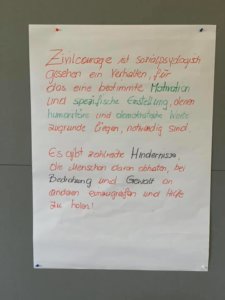 Zivilcourage ist sozialpsychologisch
gesehen ein Verhalten, für
das eine bestimmte Motivation
und spezifische Einstellung, denen
humanitäre und demokratische Werte
zugrunde liegen, notwendig sind.
Es gibt zahlreiche Hindernisse,
die Menschen daran abhalten, bei
Bedrohung und Gewalt an
anderen einzugreifen und Hilfe
zu holen!